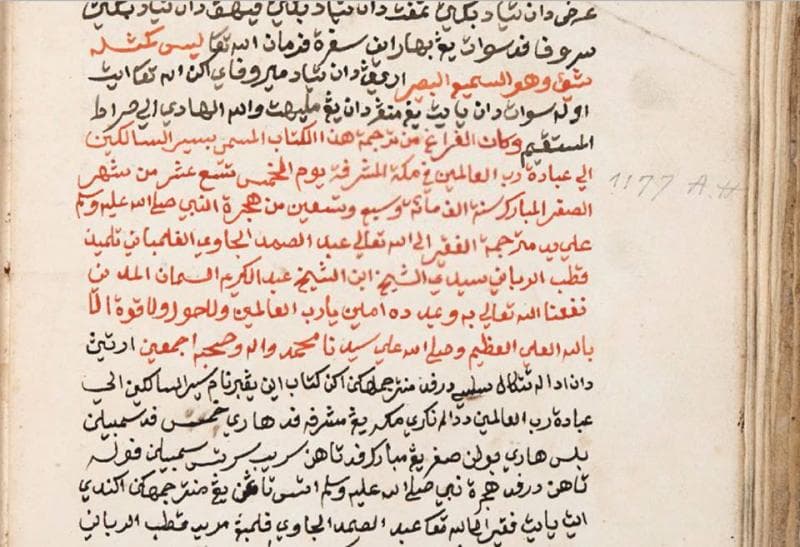 عرض دان تياد بكين دان تياد بكين دان تياد بكين
سروفا فد سوات يڠ بهارو اين سفرة فرمان الله تعا ليس كمثله
شيء وهو السميع البصير ارتيڽ دان تياد مپروفاي اكن الله تعا ايت
اوله سوات دان يائيت يڠ منڠر دان يڠ مليهت والله الهادي الي صراط
المستقيم وكان الفراغ من ترجمة هذا الكتاب المسمي بسير السالكين
الي عبادة رب العالمين في مكة المشرفة يوم الخميس تسع عشر من شهر
1177 A.H
الصفر المبارك سنة الف مائة وسبع وتسعين من هجرة النبي صلي الله عليه وسلم
علي يد مترجمه الفقير الي الله تعالي عبد الصمد الجاوي الفلمباني تلميذ
قطب الرباني سيدي الشيخ ابن الشيخ عبد الكريم السمان المدني
نفعنا الله تعالي به وعبده امين يارب العالمين ولا حول ولا قوة الا
بالله العلي العظيم وصلي الله علي سيدنا محمد واله وصحبه اجمعين ارتيڽ
دان اداله تڠݢل سلسي درفد منترجمهكن اكن كتاب اين يڠ برنام سير السالكين الي
عبادة رب العالمين ددالم نكري مكه يڠ مشرفه فد هاري خميس فد سمبيلن
بلس هاري بولن صفر يڠ مبارك فد تاهن سريب سراتس سمبيلن فوله
تاهن درفد هجرة نبي صلي الله عليه وسلم اتس تاڠن يڠ منترجمهكن اكندي
ايت يائيت فقير الي الله تعا عبد الصمد الجاوي فلمبة مريد قطب الرباني